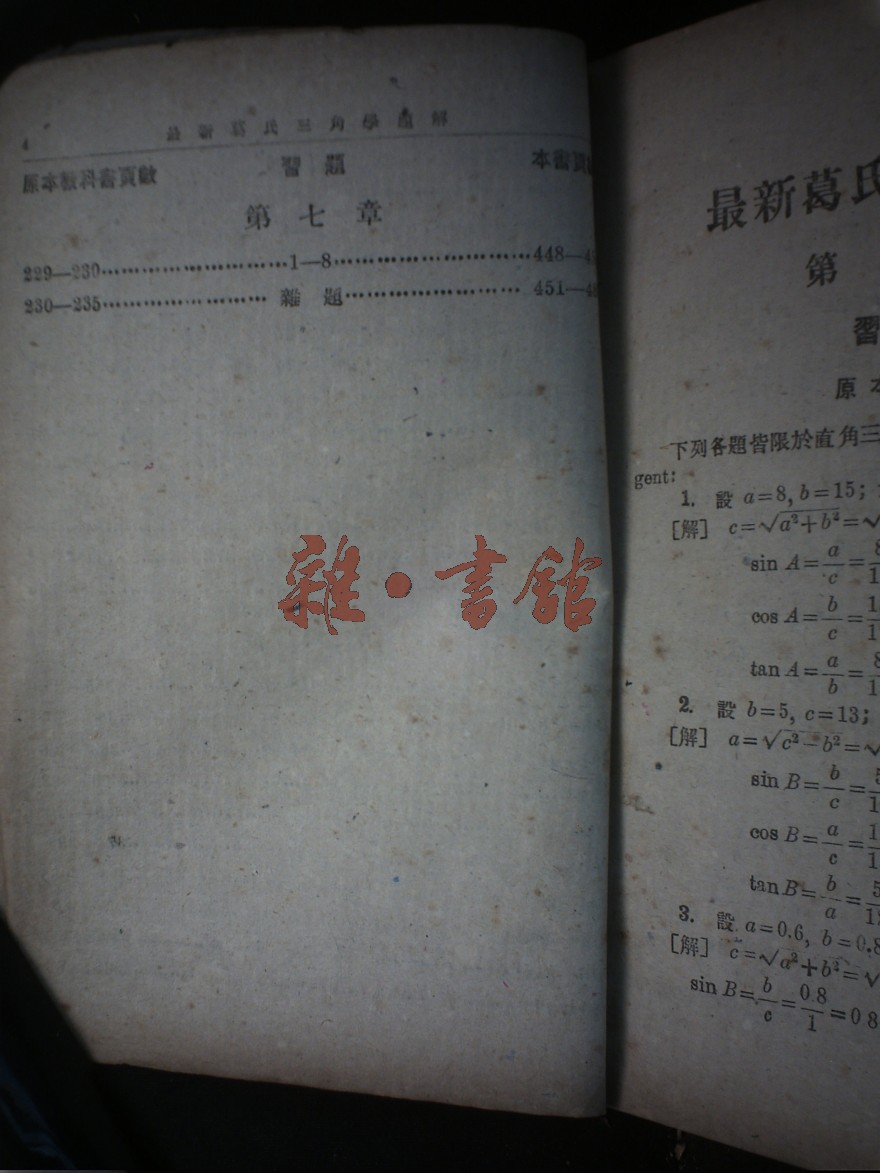 4 最新葛氏三角學題解
原本教科書頁數 習題 本書頁
第七章
229—230........................1—8........................448—4
230—235........................ 雜題........................ 451—4
雜·書館
最新葛氏
第
習
原本
下列各題皆限於直角三
gent:
1. 設 a=8, b=15;
[解] c=√a²+b²=√
sin A=a/c=8/1
cos A=b/c=1/1
tan A=a/b=8/1
2. 設 b=5, c=13;
[解] a=√c²−b²=√
sin B=b/c=5/1
cos B=a/c=1/1
tan B=b/a=5/1
3. 設 a=0.6, b=0.8
[解] c=√a²+b²=√
sin B=b/c=0.8/1=0 8